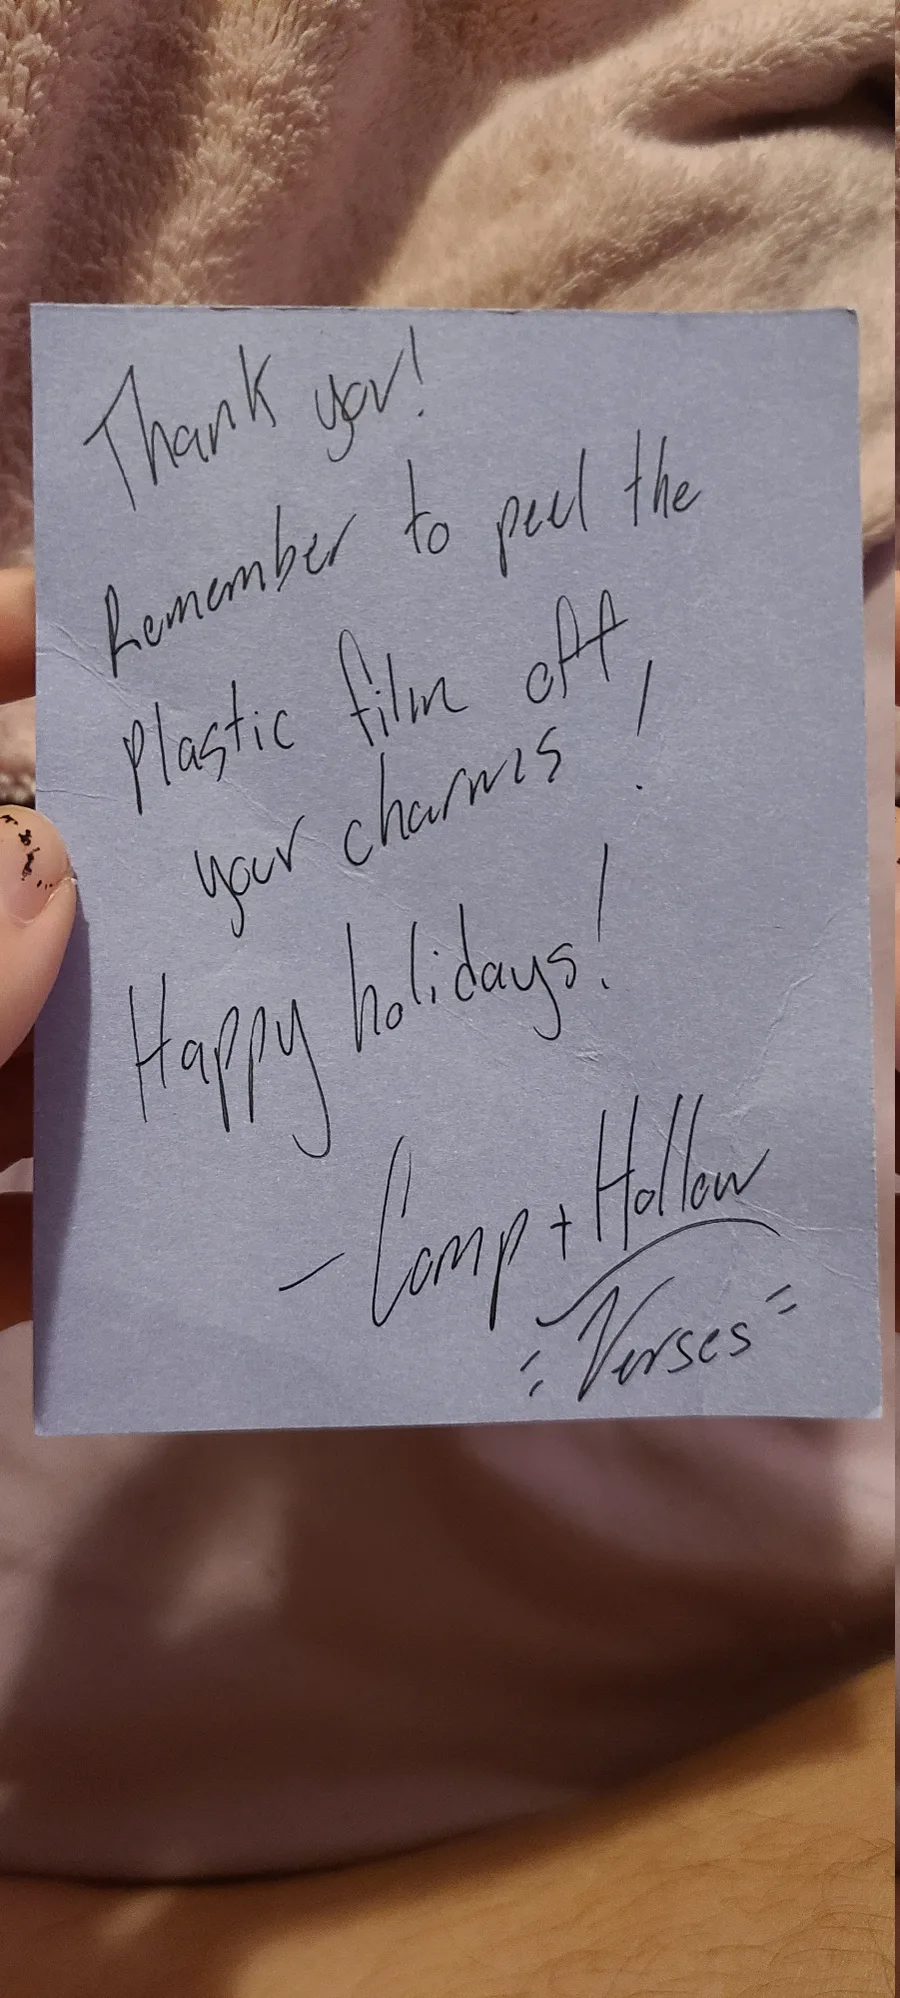 Thank you!
Remember to peel the
plastic film off
your charms!
Happy holidays!
- Comp + Hollow
Verses